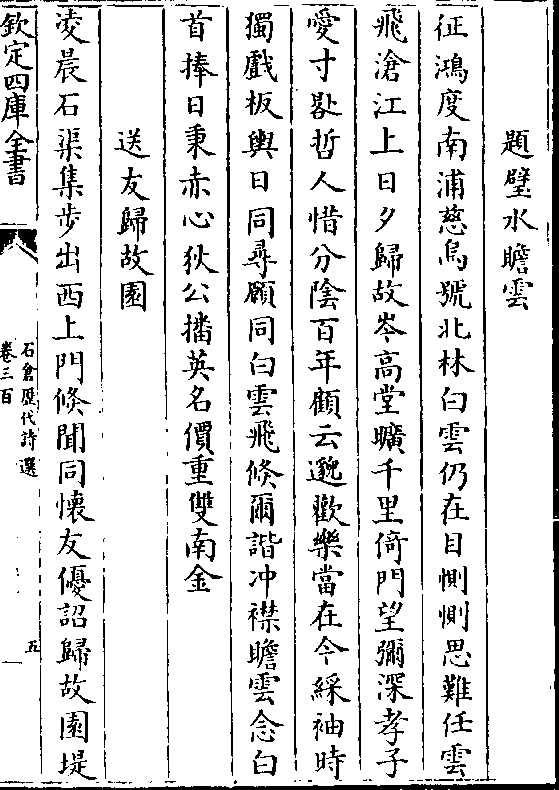 題璧水瞻雲
征鴻度南浦慈烏號北林白雲仍在目惻惻思難任雲
飛滄江上日夕歸故岑高堂曠千里倚門望彌深孝子
愛寸晷哲人惜分陰百年顧云邈歡樂當在今綵袖時
獨戲板輿日同尋願同白雲飛倏爾諧冲襟瞻雲念白
首捧日秉赤心狄公播英名價重雙南金
送友歸故園
凌晨石渠集步出西上門倏聞同懷友優詔歸故園堤
欽定四庫全書
石倉歷代詩選
卷三百
五